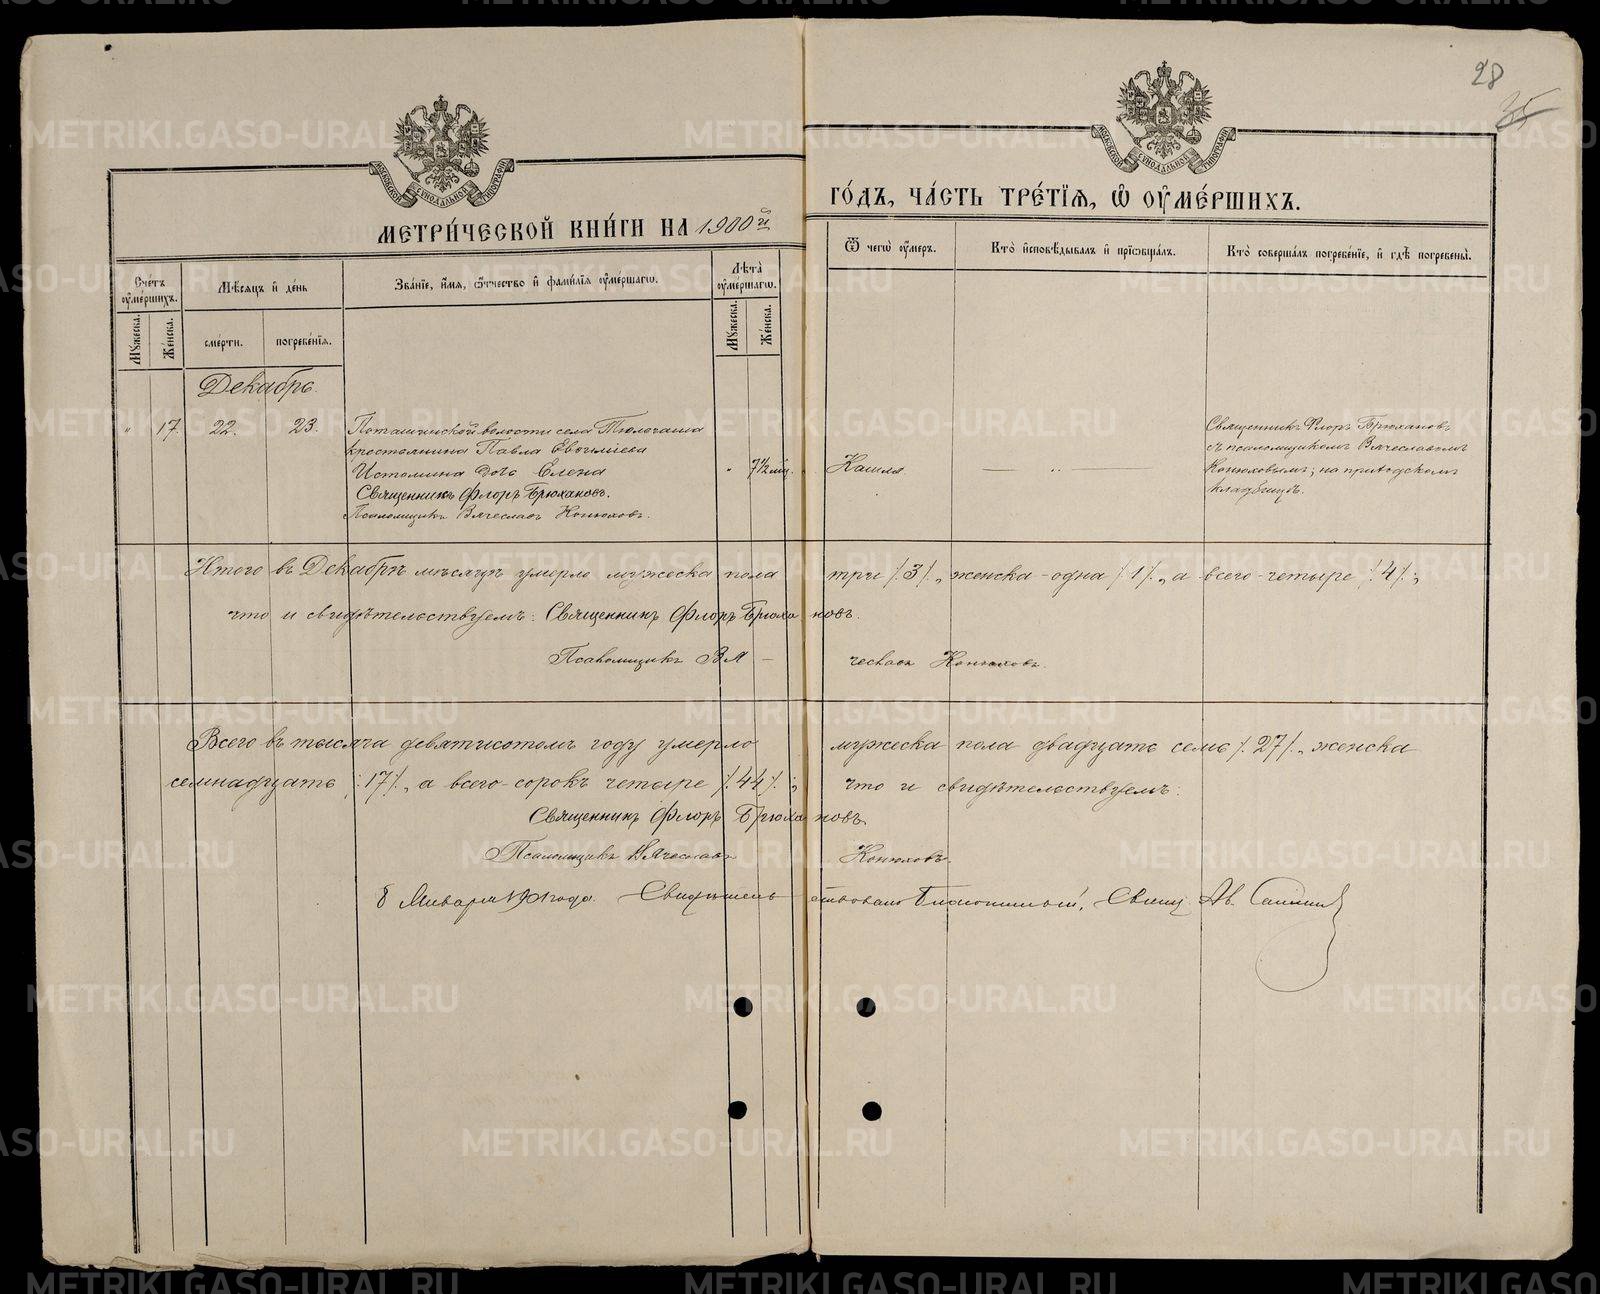 28
35
МОСКОВСКОЙ СѴНОДАЛЬНОЙ ТИПОГРАФІИ
МОСКОВСКОЙ СѴНОДАЛЬНОЙ ТИПОГРАФІИ
МЕТРИ́ЧЕСКОЙ КНИ́ГИ НА 1900й
ГО́ДЪ, ЧА́СТЬ ТРЕ́ТІЯ, Ѡ҆ ОУ҆МЕ́РШИХЪ.
Сче́тъ оу҆ме́ршихъ.
Мꙋ́жеска.
Же́нска.
Мѣ́сяцъ и҆ де́нь
сме́рти.
погребе́нія.
Зва́ніе, и҆́мя, ѻ҆́тчество и҆ фами́лія оу҆ме́ршагѡ.
Лѣ́та оу҆ме́ршагѡ.
Мꙋ́жеска.
Же́нска.
Ѿ чегѡ̀ оу҆́меръ.
Кто̀ и҆сповѣ́дывалъ и҆ прїѡбща́лъ.
Кто̀ соверша́лъ погребе́ніе, и҆ гдѣ̀ погребены̀.
Декабрь.
" 17. 22. 23.
Поташинской волости села Тюлегаша
крестьянина Павла
Истомина дочь Елена
Священникъ Флоръ Брюхановъ.
Псаломщикъ Вячеславъ Конюховъ.
" 7½ мц.
Кашля
— " —
Священникъ Флоръ Брюхановъ
съ псаломщикомъ Вячеславомъ
Конюховымъ; на приходскомъ
кладбищѣ.
Итого въ Декабрѣ мѣсяцѣ умерло мужеска пола три /3/, женска - одна /1/, а всего - четыре /4/;
что и свидѣтельствуемъ: Священникъ Флоръ Брюхановъ.
Псаломщикъ Вячеславъ Конюховъ.
Всего въ тысяча девятисотомъ году умерло мужеска пола двадцать семь /27/, женска
семнадцать /17/, а всего - сорокъ четыре /44/; что и свидѣтельствуемъ:
Священникъ Флоръ Брюхановъ
Псаломщикъ Вячеславъ Конюховъ.
8 Января 1901 года. Свидѣтельствовалъ Благочинный, Свящ. Ав.
METRIKI.GASO-URAL.RU